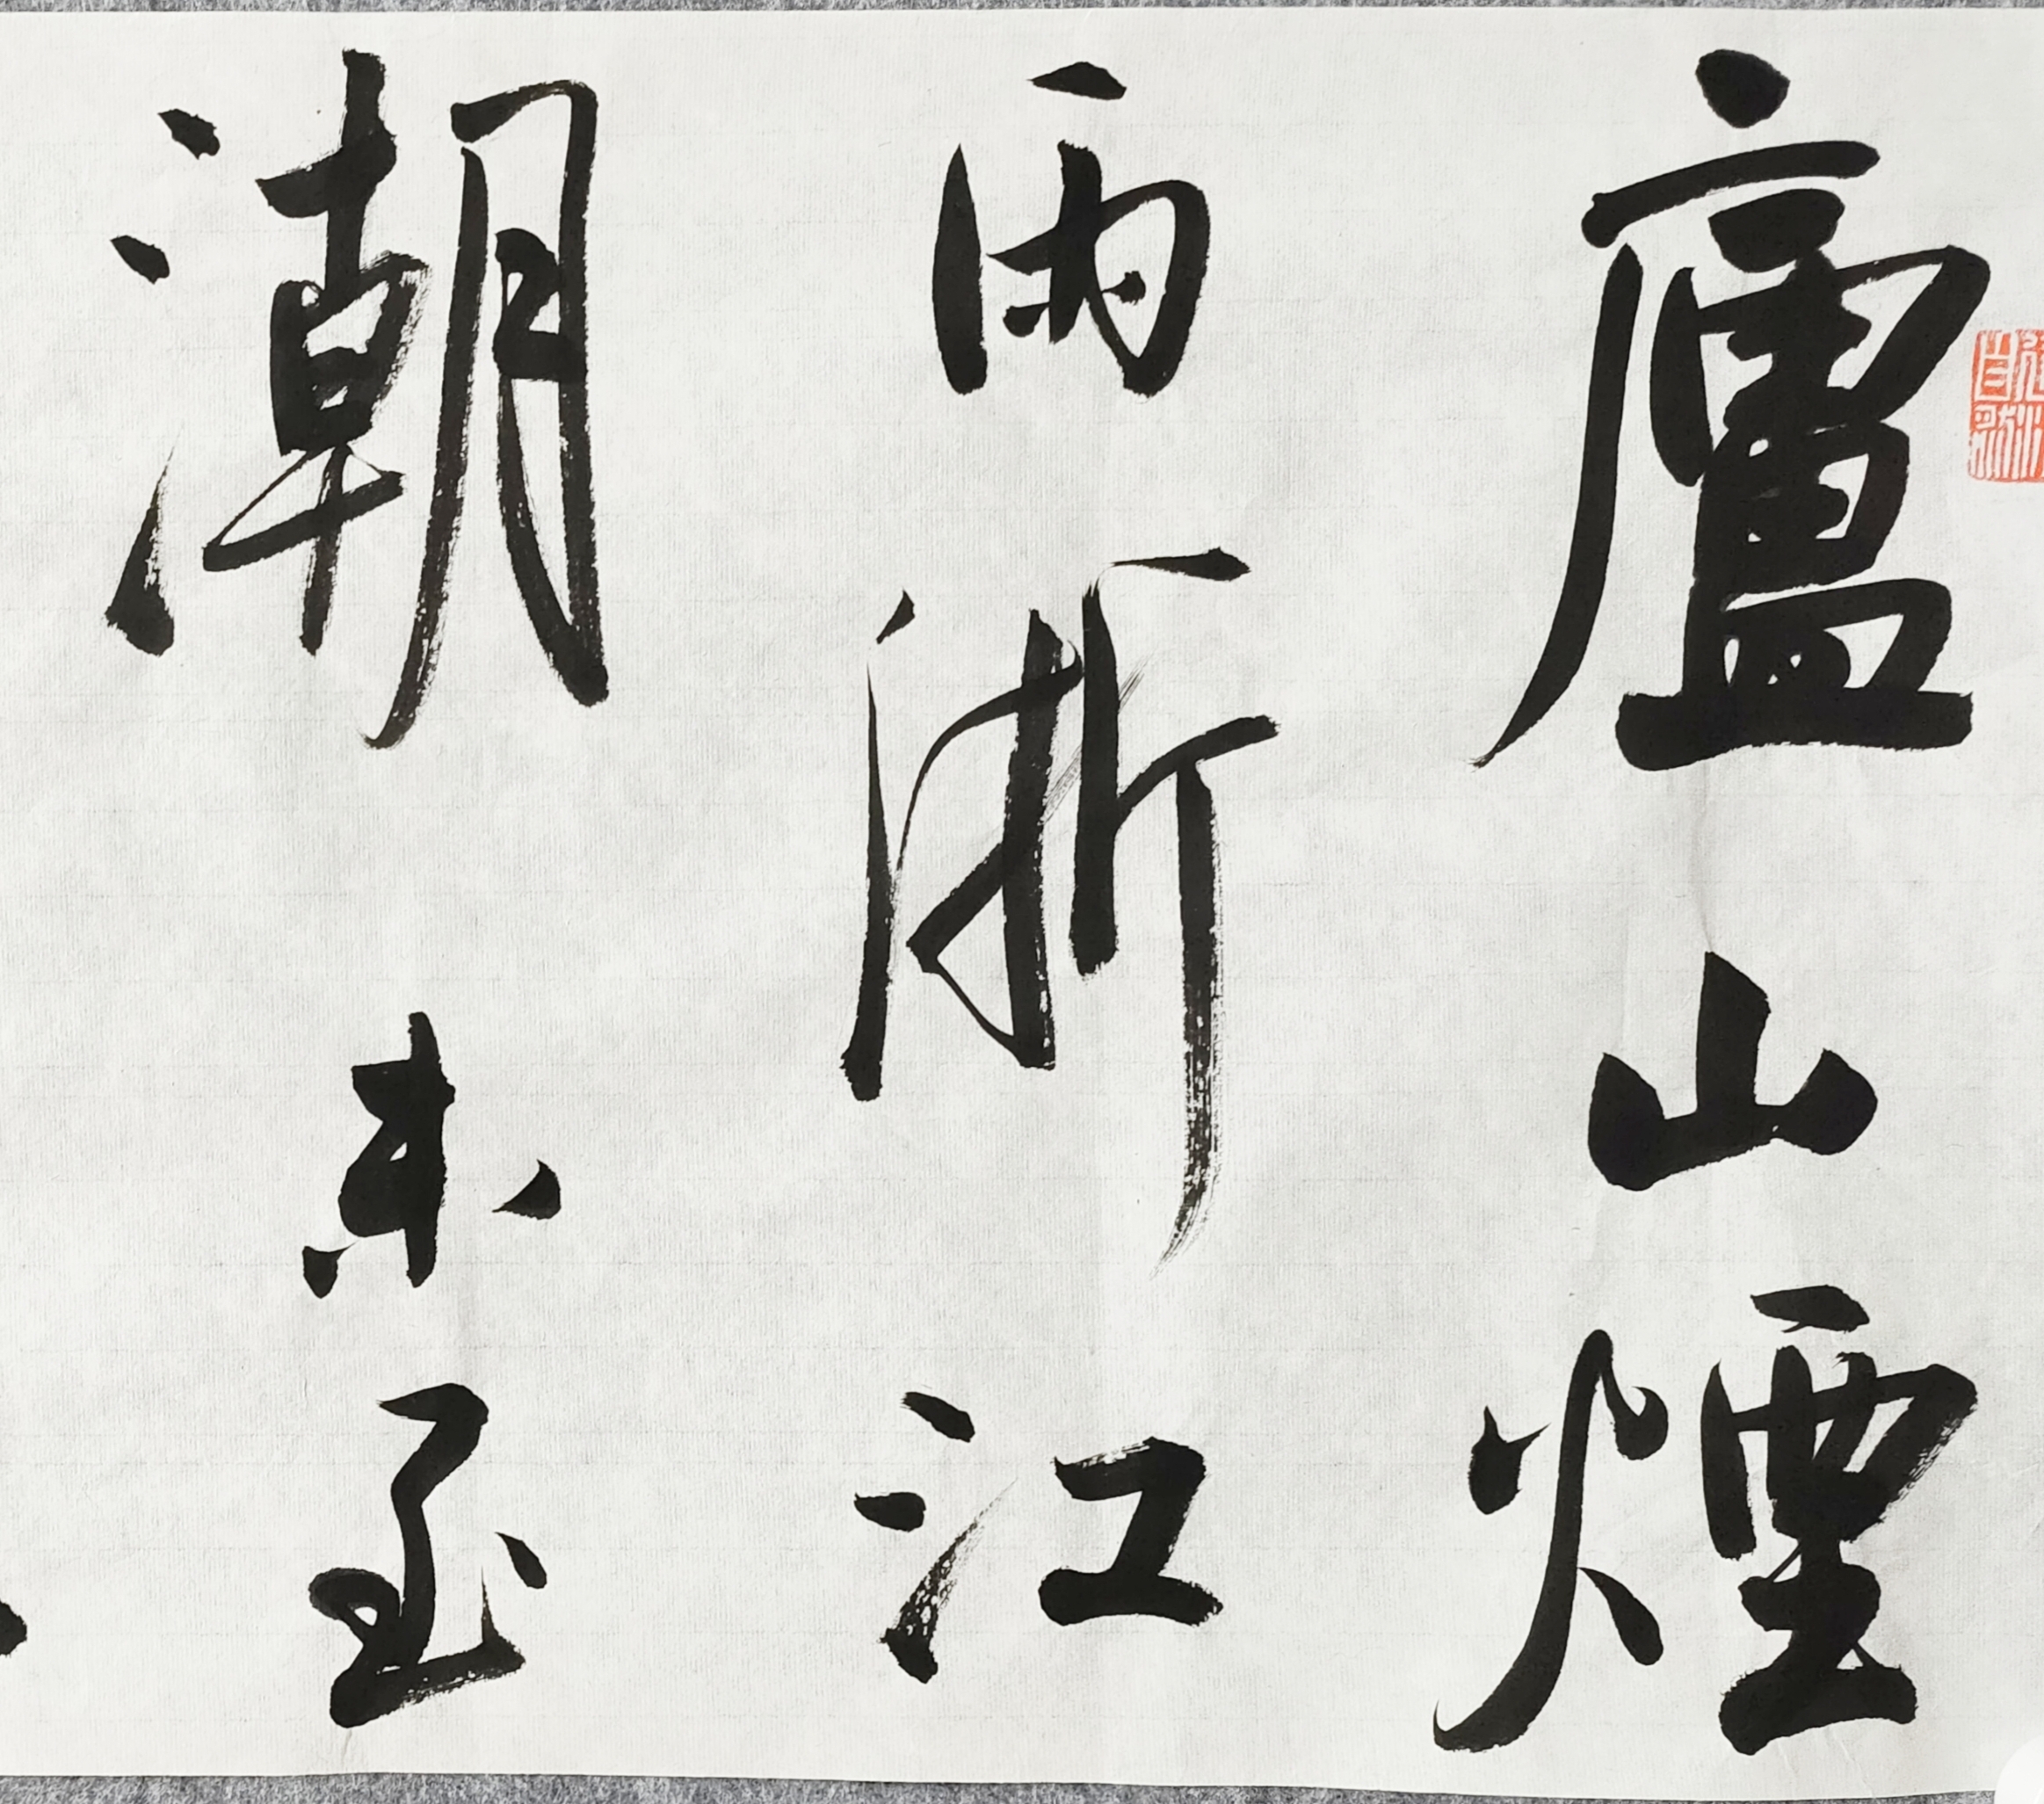 廬山煙
雨浙江
潮未至